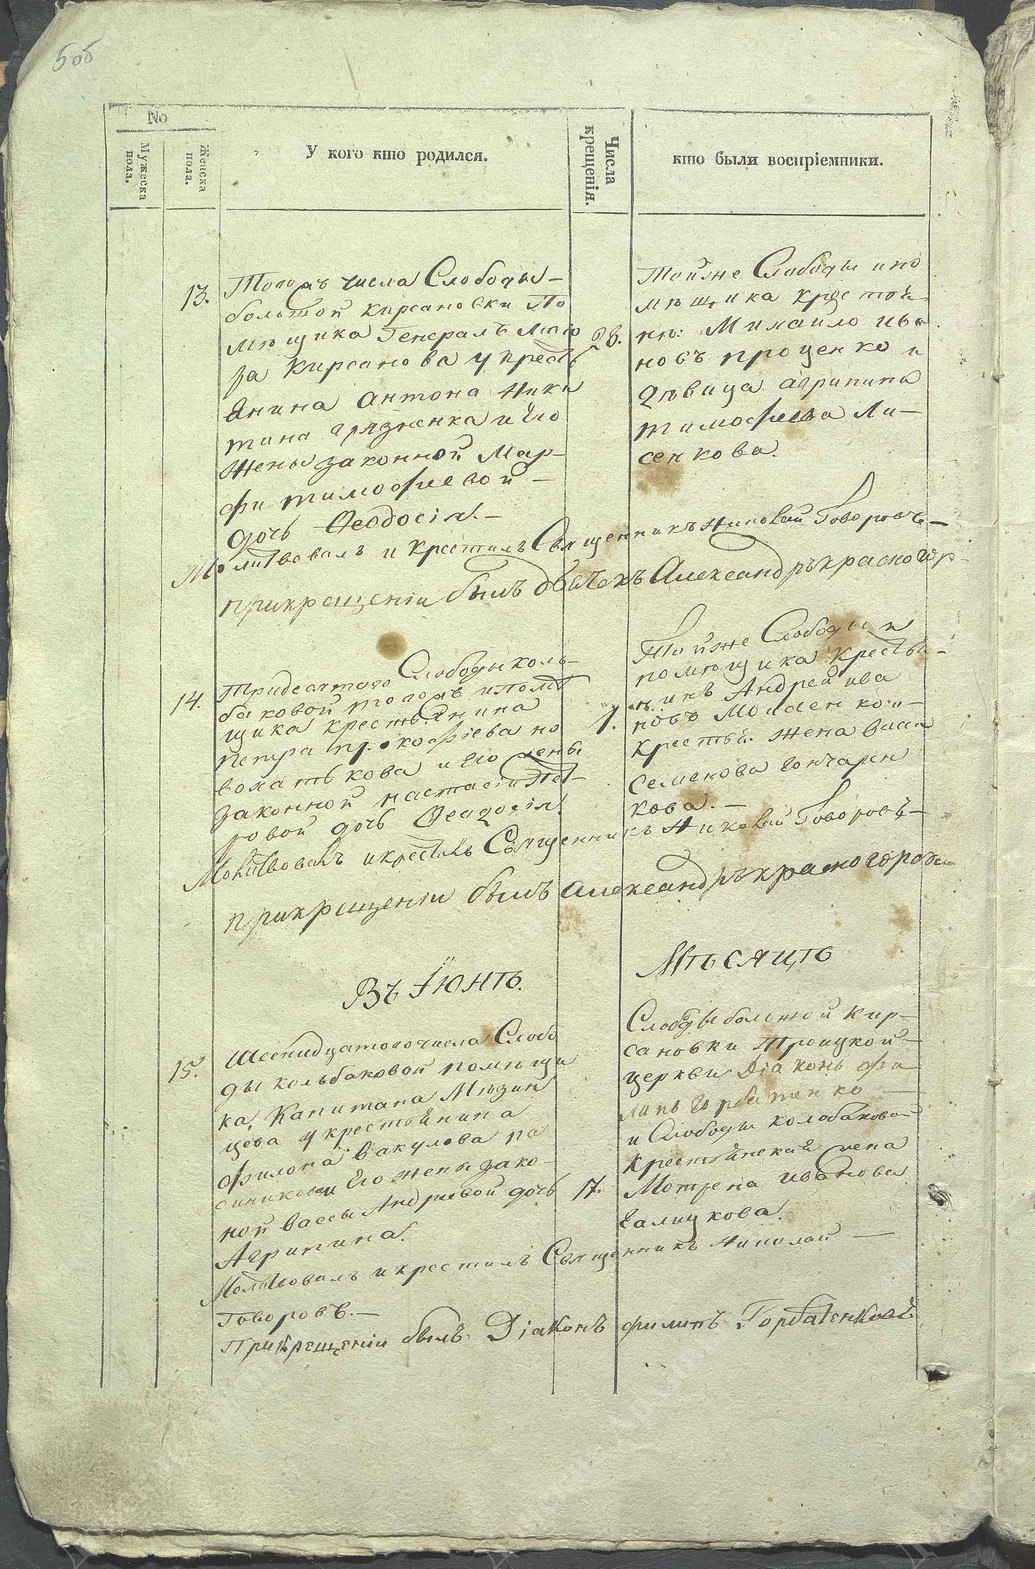 505
No
Мужеска пола.
Женска пола.
У кого кто родился.
Числа крещенія.
кто были воспріемники.
13.
Тогожъ числа Слободы
большой Кирсановки По
мѣщика Генералъ Маіо
ра Кирсанова у кресть
янина Антона Ники
тина Грязненка и Его
Жены законной Мар
фи Тимофіевой
дочь Феодосія.
28.
Тойже Слободы и по
мѣщика крестья
нинъ Михайло Ива
новъ Проценко и
дѣвица Агрипина
Тимофіева Ли
сенкова.
Молитвовалъ и крестилъ Священникъ Николай Говоровъ
при крещеніи былъ дьячекъ Александръ Красногор
14.
Тридесятого Слободы коль
баковой тогожъ помѣ
щика крестьянина
Петра Прокофіева но
вохатькова и Его жены
законной Настасіи Пет
ровой дочь Феодосія.
1.
Тойже Слободы и
помѣщика крестья
нинъ Андрей Ива
новъ и
крестьян. жена Васса
Семенова Гончарен
кова.
Молитвовалъ и крестилъ Священникъ Николай Говоровъ
при крещеніи былъ Александръ Красногорск
Въ Іюнѣ
Мѣсяцѣ
15.
Шеснадцатого числа Слобо
ды кольбаковой помѣщи
ка, Капитана Мѣзин
цева у крестьянина
Филона Вакулова па
синкова и Его жены зако
ной Вассы Андріевой дочь
Агрипина.
17.
Слободы большой Кир
сановки Троицкой
церкви Діаконъ Фи
липъ Горбатенко
и Слободы колбаковой
крестьянской жена
Мотрена Иванова
Галицкова.
Молитвовалъ и крестилъ Священникъ Николай
Говоровъ.
При крещеніи былъ Діаконъ Филипъ Горбатенковъ